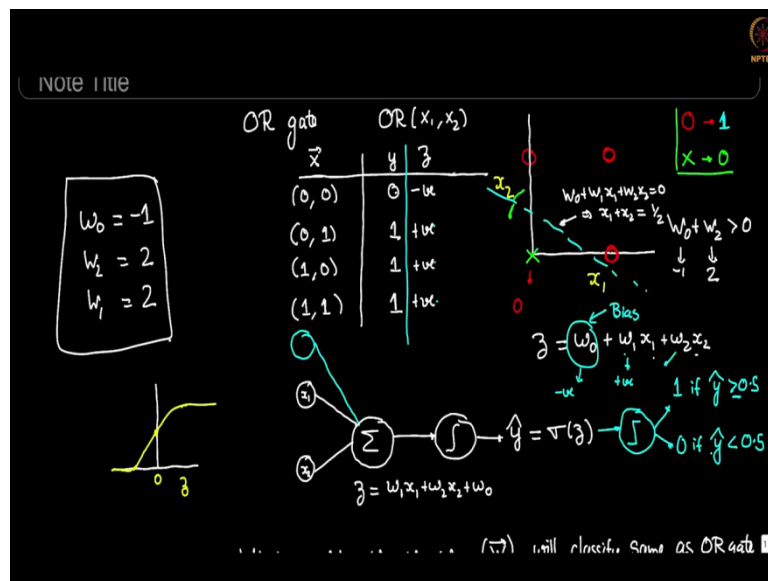 NPTEL
Note Title
OR gate OR(x₁,x₂)
x⃗ y z
(0,0) 0 -ve
(0,1) 1 +ve
(1,0) 1 +ve
(1,1) 1 +ve
w₀ = -1
w₂ = 2
w₁ = 2
O → 1
X → 0
x₂
w₀+w₁x₁+w₂x₂=0
⇒ x₁+x₂=1/2
x₁
0
w₀+w₂>0
-1 2
Bias
z = w₀ + w₁x₁ + w₂x₂
-ve +ve
x₁
x₂
Σ
ŷ = σ(z)
1 if ŷ ≥0.5
0 if ŷ <0.5
z = w₁x₁+w₂x₂+w₀
0 z
will classify same as OR gate